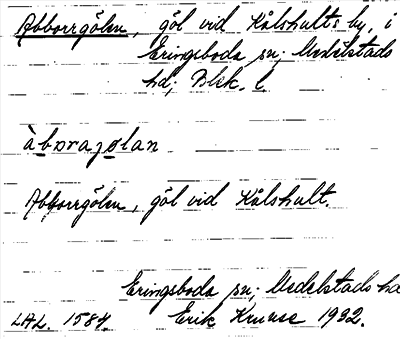 Abborrgölen, göl vid Kålshults by, i
Eringsboda sn; Medelstads
hd; Blek. l.
àbɒraɟølan
Abborrgölen, göl vid Kålshult.
Eringsboda sn; Medelstads hd
LAL. 1584. Erik Kruuse 1932.